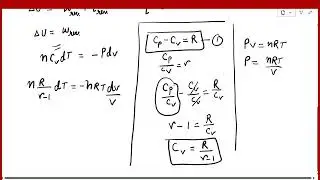 ΔU = Wrev
ΔU = Wrev
nCvdT = -Pdv
n R/r-1 dT = -nRT dv/v
Cp - Cv = R - ①
Cp/Cv = r
Cp/Cv - Cv/Cv = R/Cv
r - 1 = R/Cv
Cv = R/r-1
Pv = nRT
P = nRT/v